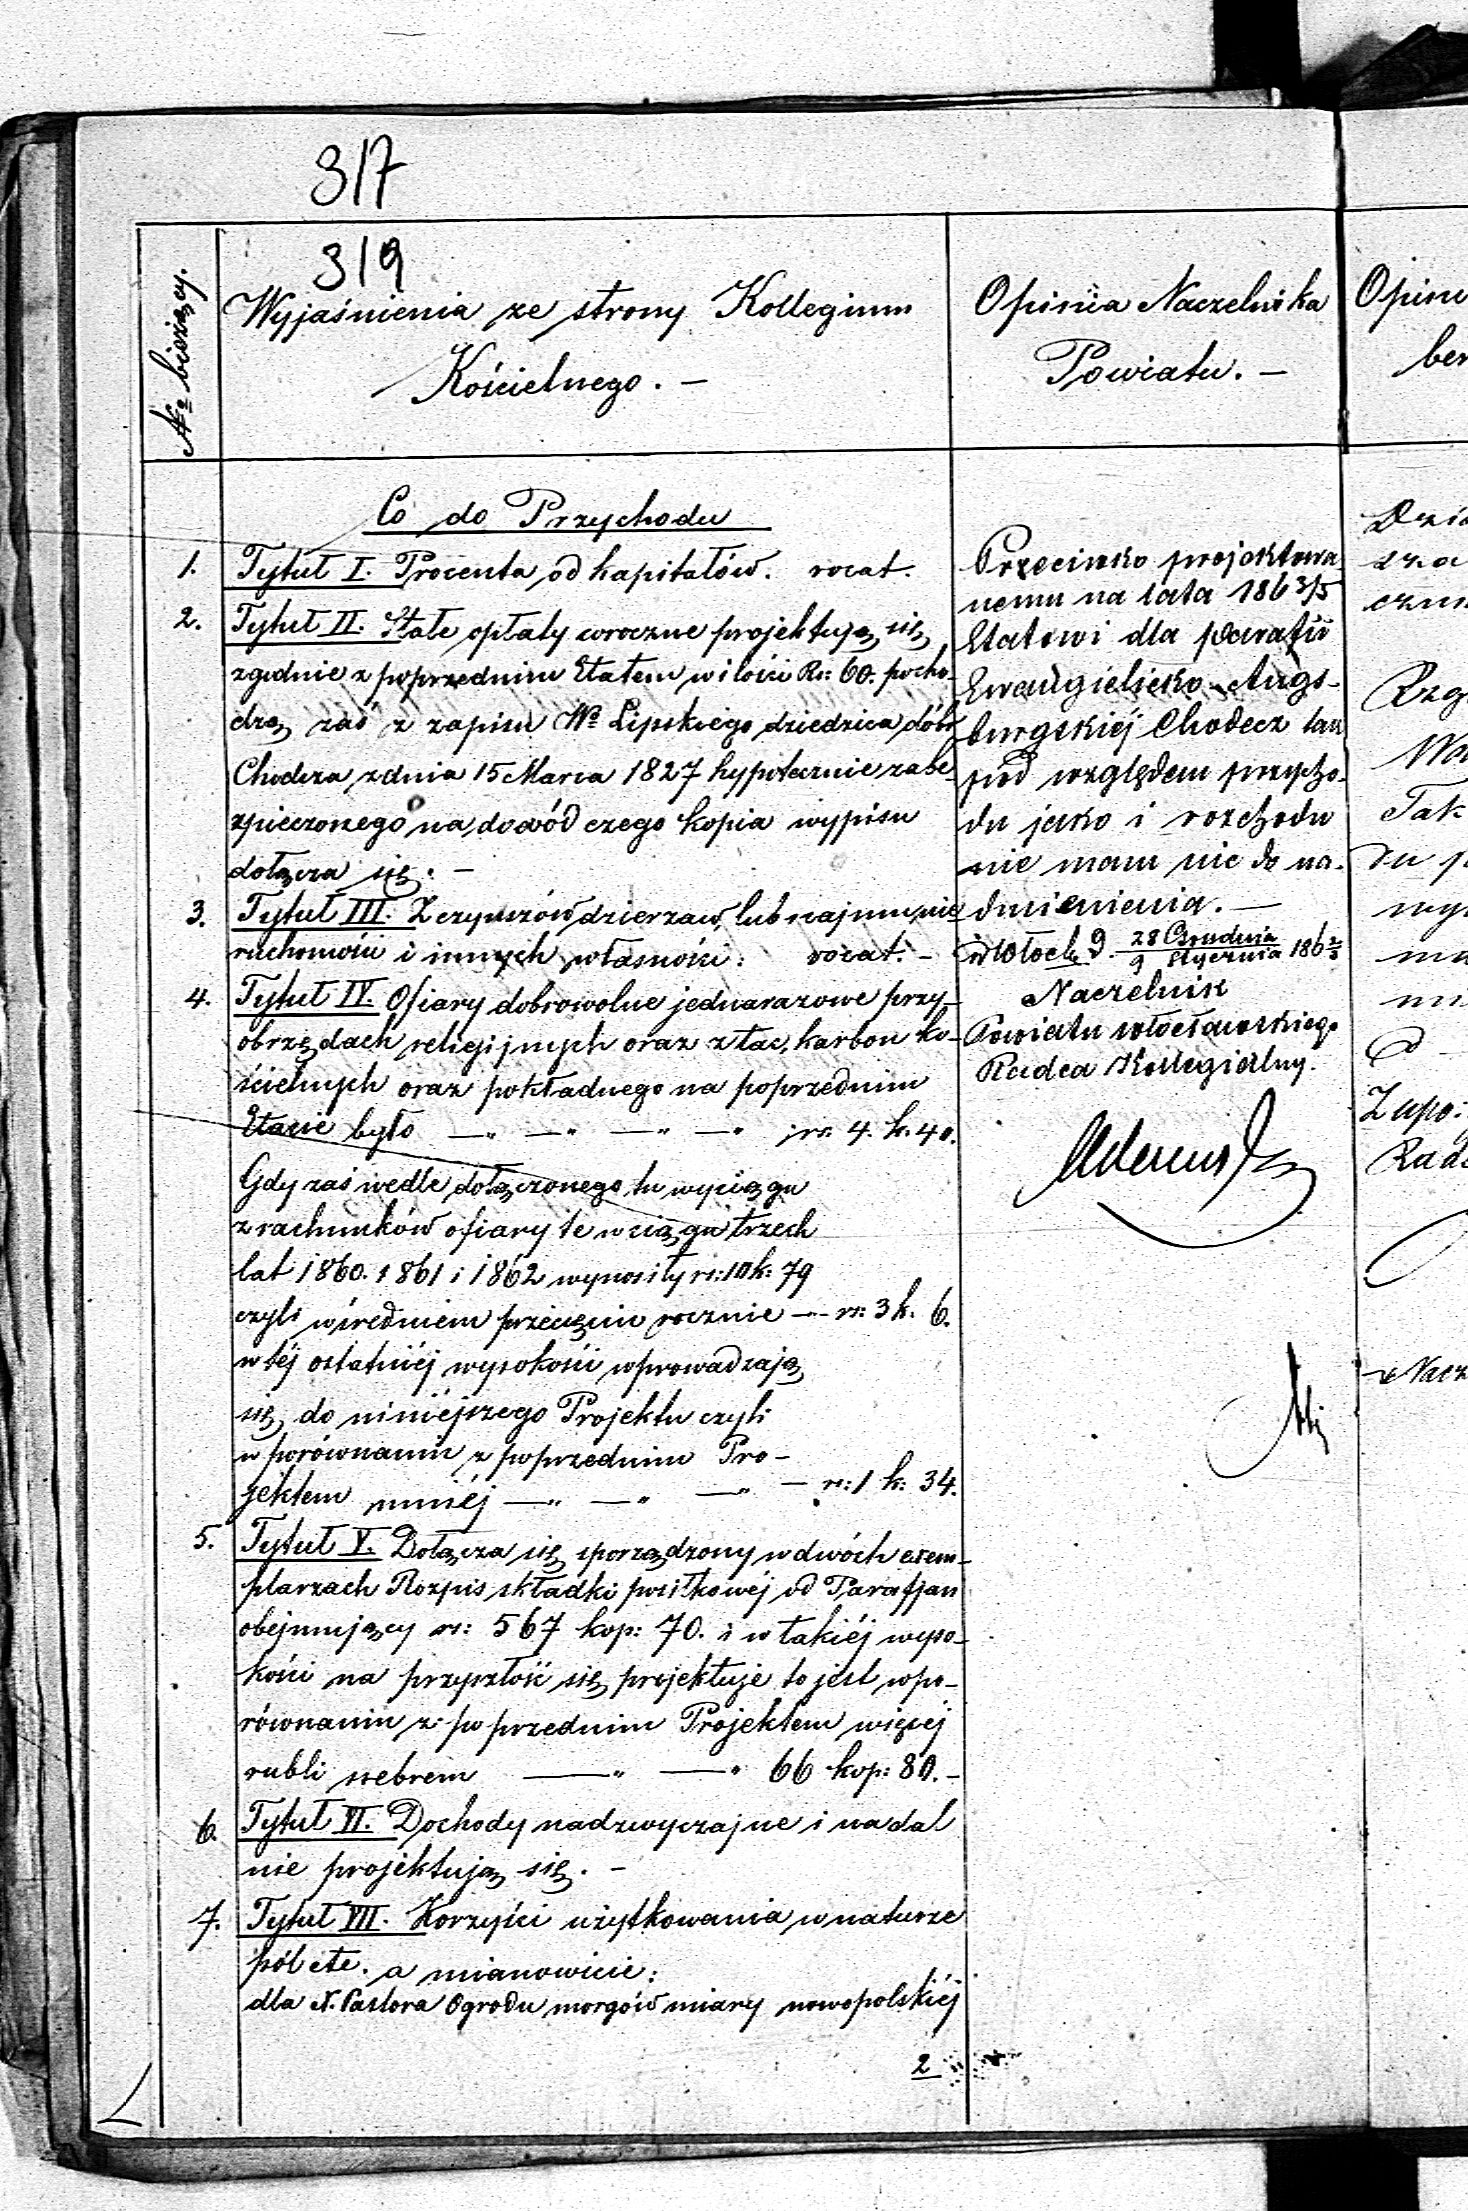 317
319
No bieżący.
Wyjaśnienia ze strony Kollegium
Kościelnego. —
Co do Przychodu
1. Tytuł I. Procenta od kapitałów. vocat.
2. Tytuł II. Stałe opłaty coroczne projektują się
zgodnie z poprzednim Etatem w ilości Rs: 60. pocho-
dzą zaś z zapisu Wo Lipskiego dziedzica dóbr
Chodcza z dnia 15 Marca 1827 hypotecznie zabe-
zpieczonego na dowód czego kopia wypisu
dołącza się. —
3. Tytuł III. Z czynszów dzierzaw, lub najmu nie
ruchomości i innych własności: vocat. —
4. Tytuł IV. Ofiary dobrowolne jednarazowe przy-
obrzędach religijnych oraz z tac, karbon ko-
ścielnych oraz pokładnego na poprzednim
Etacie było —„ —„ —„ —„ rs. 4. k. 40.
Gdy zaś wedle dołączonego tu wyciągu
z rachunków ofiary te w ciągu trzech
lat 1860. 1861 i 1862 wynosiły rs: 10 k: 79
czyli w średniem przecięciu rocznie — rs: 3 k. 6.
w téj ostatniéj wysokości wprowadzają
się do niniejszego Projektu czyli
w porównaniu z poprzednim Pro-
jektem mniéj —„ —„ —„ — rs: 1 k: 34.
5. Tytuł V. Dołącza się sporządzony w dwóch exem-
plarzach Rozpis składki posiłkowéj od Parafjan
obejmujący rs: 567 kop: 70. i w takiéj wyso-
kości na przyszłość się projektuje to jest w po-
równaniu z poprzednim Projektem więcéj
rubli srebrem —„ —„ 66 kop: 80. —
6. Tytuł VI. Dochody nadzwyczajne i nadal
nie projektują się. —
7. Tytuł VII. Korzyści użytkowania w naturze
pól etc. a mianowicie:
dla N. Pastora Ogrodu morgów miary nowopolskiéj
2
Opinia Naczelnika
Powiatu. —
Przeciwko projektowa
nemu na lata 1863/5
Etatowi dla parafii
Ewangielicko-Augs-
burgskiéj Chodecz tak
pod względem przycho-
du jako i rozchodu
nie mam nic do na-
dmienienia. —
Włocł. d. 28 Grudnia / 9 Stycznia 186 2/3
Naczelnik
Powiatu Włocławskiego
Radca Kollegialny.
Opin
Tak
Rade
Nacz